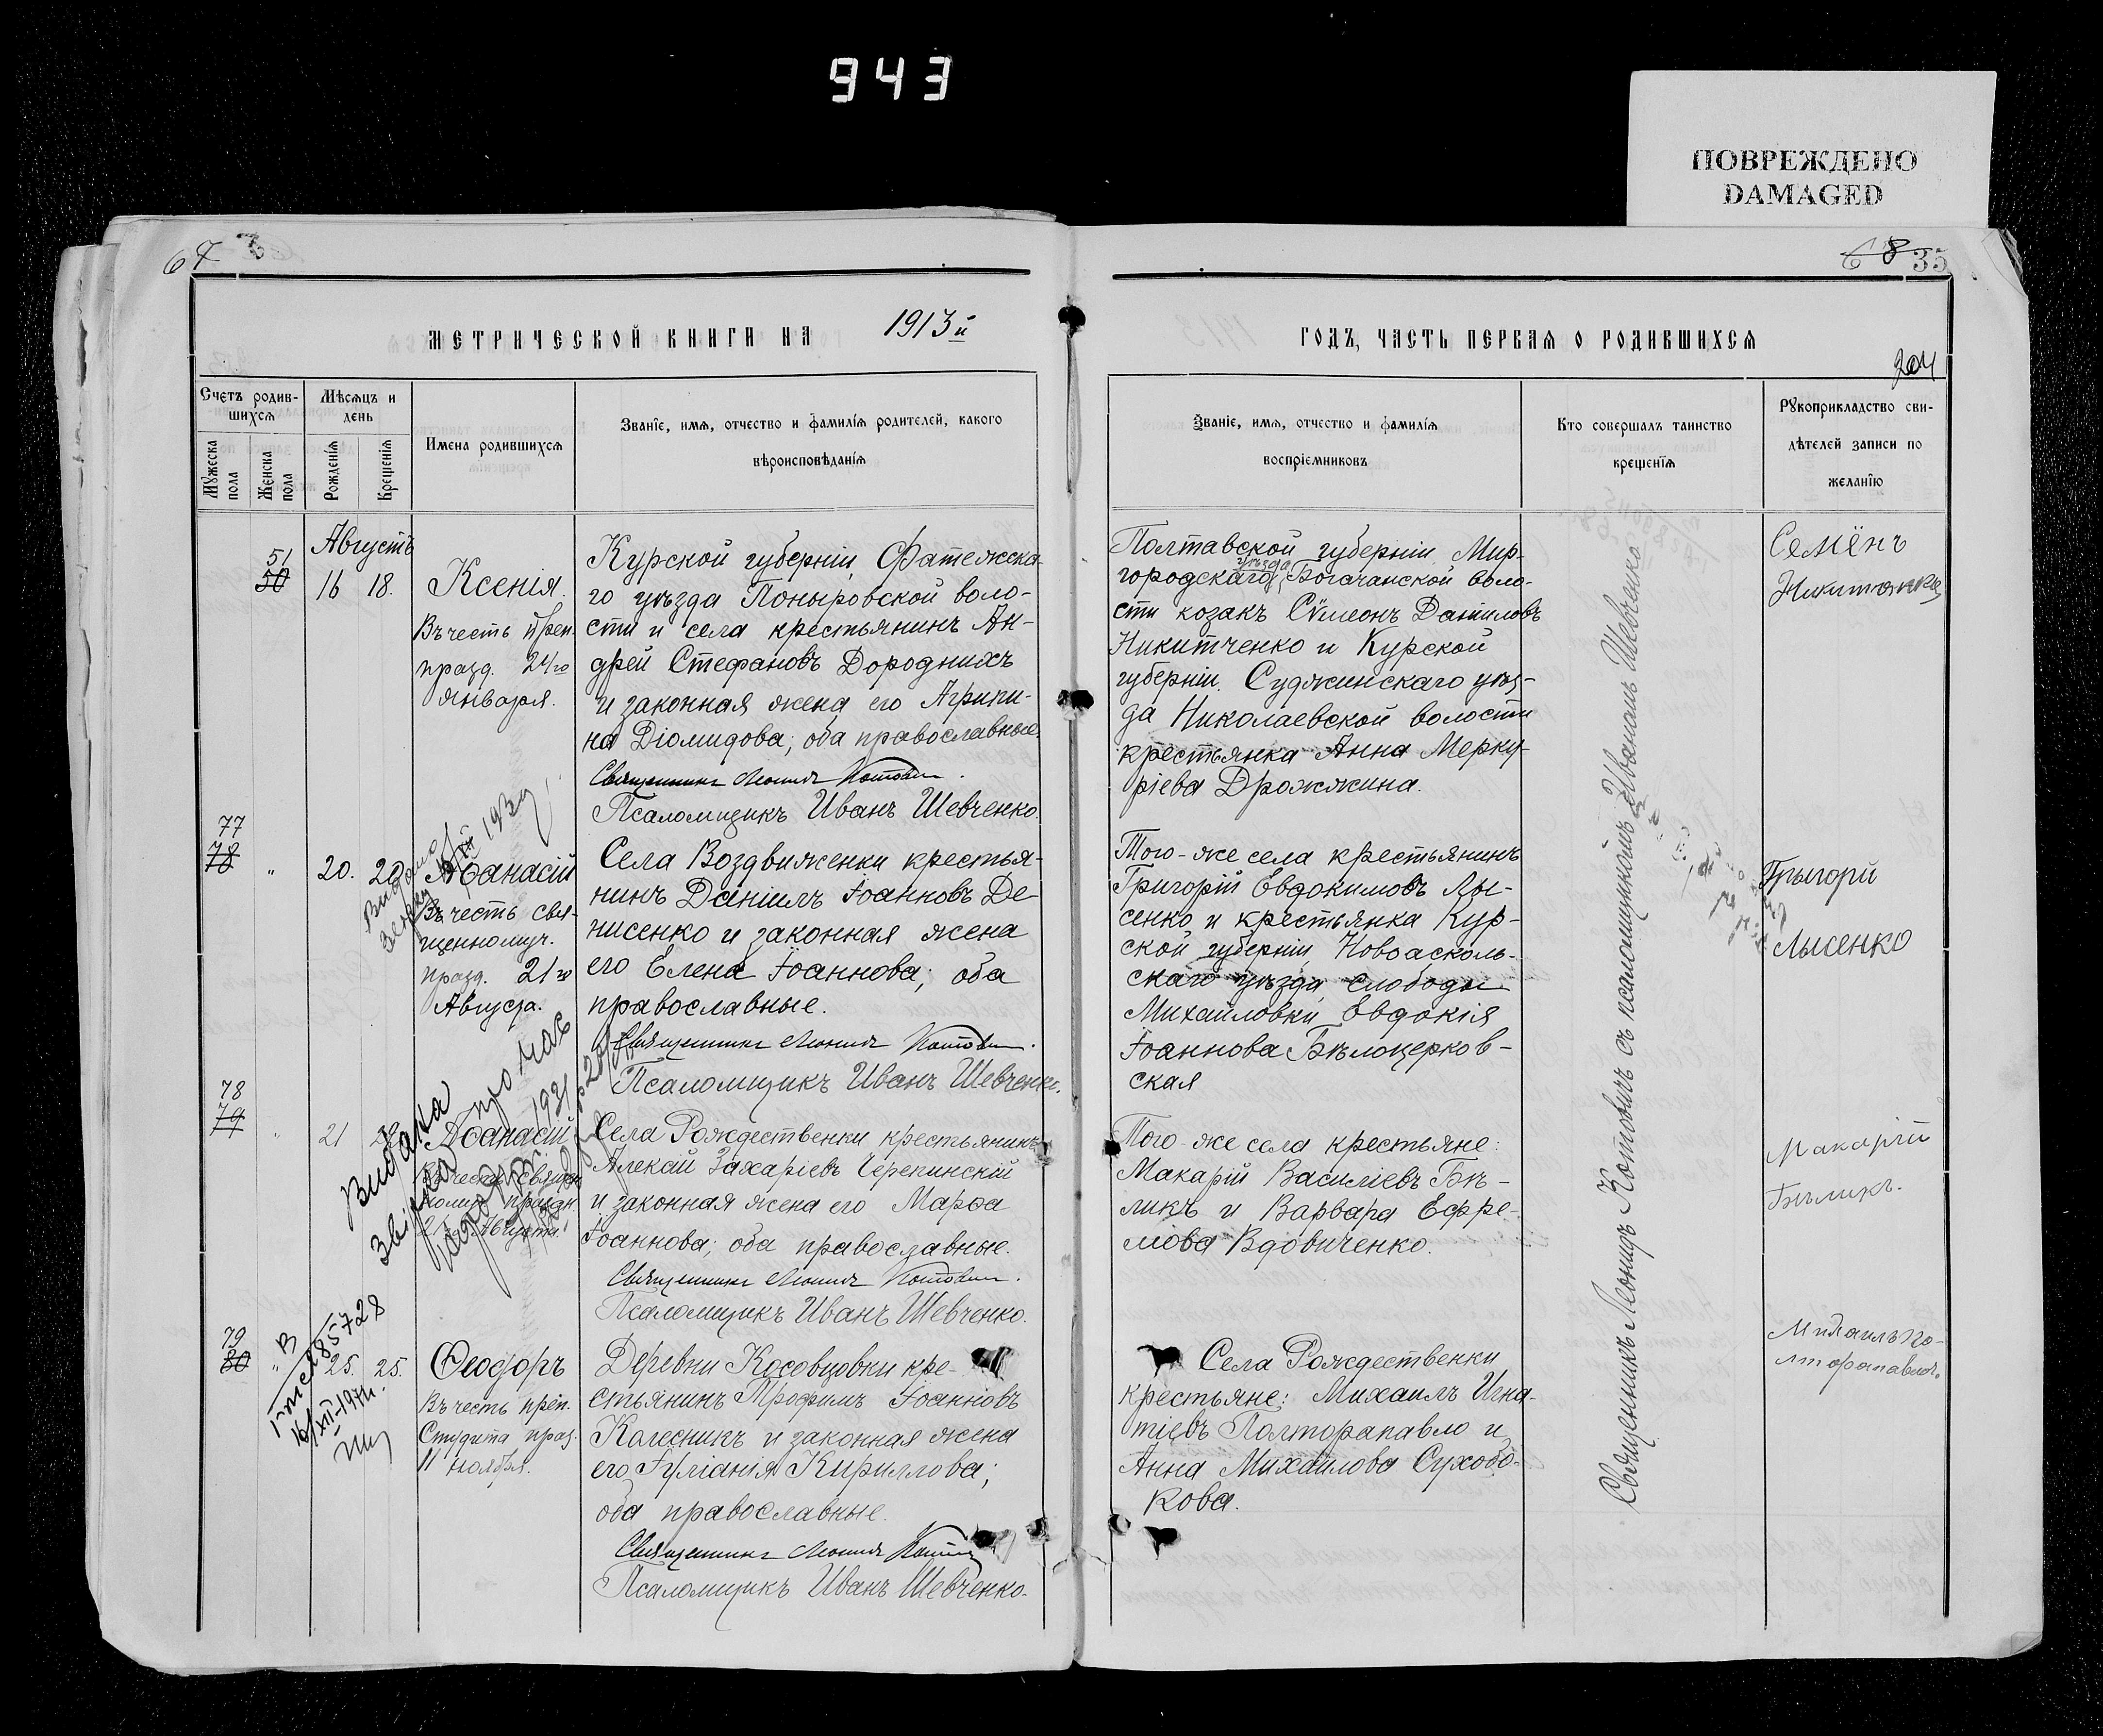 943
ПОВРЕЖДЕНО
DAMAGED
67
68 35
МЕТРИЧЕСКОЙ КНИГИ НА 1913й
ГОДЪ, ЧАСТЬ ПЕРВАЯ О РОДИВШИХСЯ
204
Счетъ родив-
шихся
Мужеска
пола
Женска
пола
Мѣсяцъ и
день
Рожденія
Крещенія
Имена родившихся
Званіе, имя, отчество и фамилія родителей, какого
вѣроисповѣданія
Званіе, имя, отчество и фамилія
воспріемниковъ
Кто совершалъ таинство
крещенія
Рукоприкладство сви-
дѣтелей записи по
желанію
Августъ
51
50
16 18.
Ксенія.
Въ честь преп.
празд. 24го
января.
Курской губерніи, Фатежска-
го уѣзда Поныровской воло-
сти и села крестьянинъ Ан-
дрей Стефановъ Дородныхъ
и законная жена его Агрипи-
на Діомидова; оба православные.
Священникъ Леонидъ Котовичъ.
Псаломщикъ Иванъ Шевченко.
Полтавской губерніи, Мир-
городскаго уѣзда Богачанской воло-
сти козакъ Сѵмеонъ Даніиловъ
Никитченко и Курской
губерніи, Суджинскаго уѣз-
да Николаевской волости
крестьянка Анна Мерку-
ріева Дрожжина.
Семёнъ
77
78
" 20. 20.
Аѳанасій
Въ честь свя-
щенномуч.
празд. 21го
Августа.
Села Воздвиженки крестья-
нинъ Даніилъ Іоанновъ Де-
нисенко и законная жена
его Елена Іоаннова; оба
православные.
Священникъ Леонидъ Котовичъ.
Псаломщикъ Иванъ Шевченко.
Того-же села крестьянинъ
Григорій Евдокимовъ Лы-
сенко и крестьянка Кур-
ской губерніи, Новоасколь-
скаго уѣзда, слободы
Михайловки Евдокія
Іоаннова Бѣлоцерков-
ская
Грыгорй
Лысенко
78
79
" 21
Аѳанасій
21го Августа.
Видана
Села Рождественки крестьянинъ
Алексѣй Захаріевъ Черепинскій
и законная жена его Марѳа
Іоаннова; оба православные.
Священникъ Леонидъ Котовичъ.
Псаломщикъ Иванъ Шевченко.
Того-же села крестьяне:
Макарій Василіевъ Бѣ-
ликъ и Варвара Ефре-
мова Вдовиченко.
Макарій
Бѣликъ.
79
80
" 25. 25.
Ѳеодоръ
Въ честь преп.
Студита праз.
11 ноября.
Деревни Косовцовки кре-
стьянинъ Трофимъ Іоанновъ
Колесникъ и законная жена
его Іуліанія Кириллова;
оба православные.
Священникъ Леонидъ Котовичъ
Псаломщикъ Иванъ Шевченко.
Села Рождественки
крестьяне: Михаилъ Игна-
тіевъ Полторапавло и
Анна Михайлова Сухобо-
кова.
Михаилъ По-
лторапавло.
Священникъ Леонидъ Котовичъ съ псаломщикомъ Иваномъ Шевченко